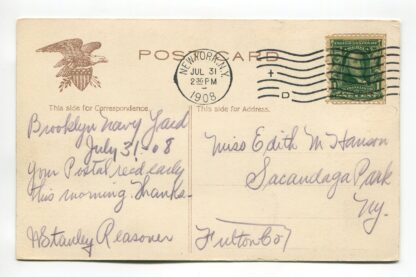 POST CARD
NEW YORK, N.Y.
JUL 31
2 30 PM
1908
D
This side for Correspondence.
This side for Address.
Brooklyn Navy Yard
July 31 08
Your Postal rec'd early
this morning. Thanks.
W Stanley Reasoner
Miss Edith M Hanson
Sacandaga Park
Ny.
Fulton Co